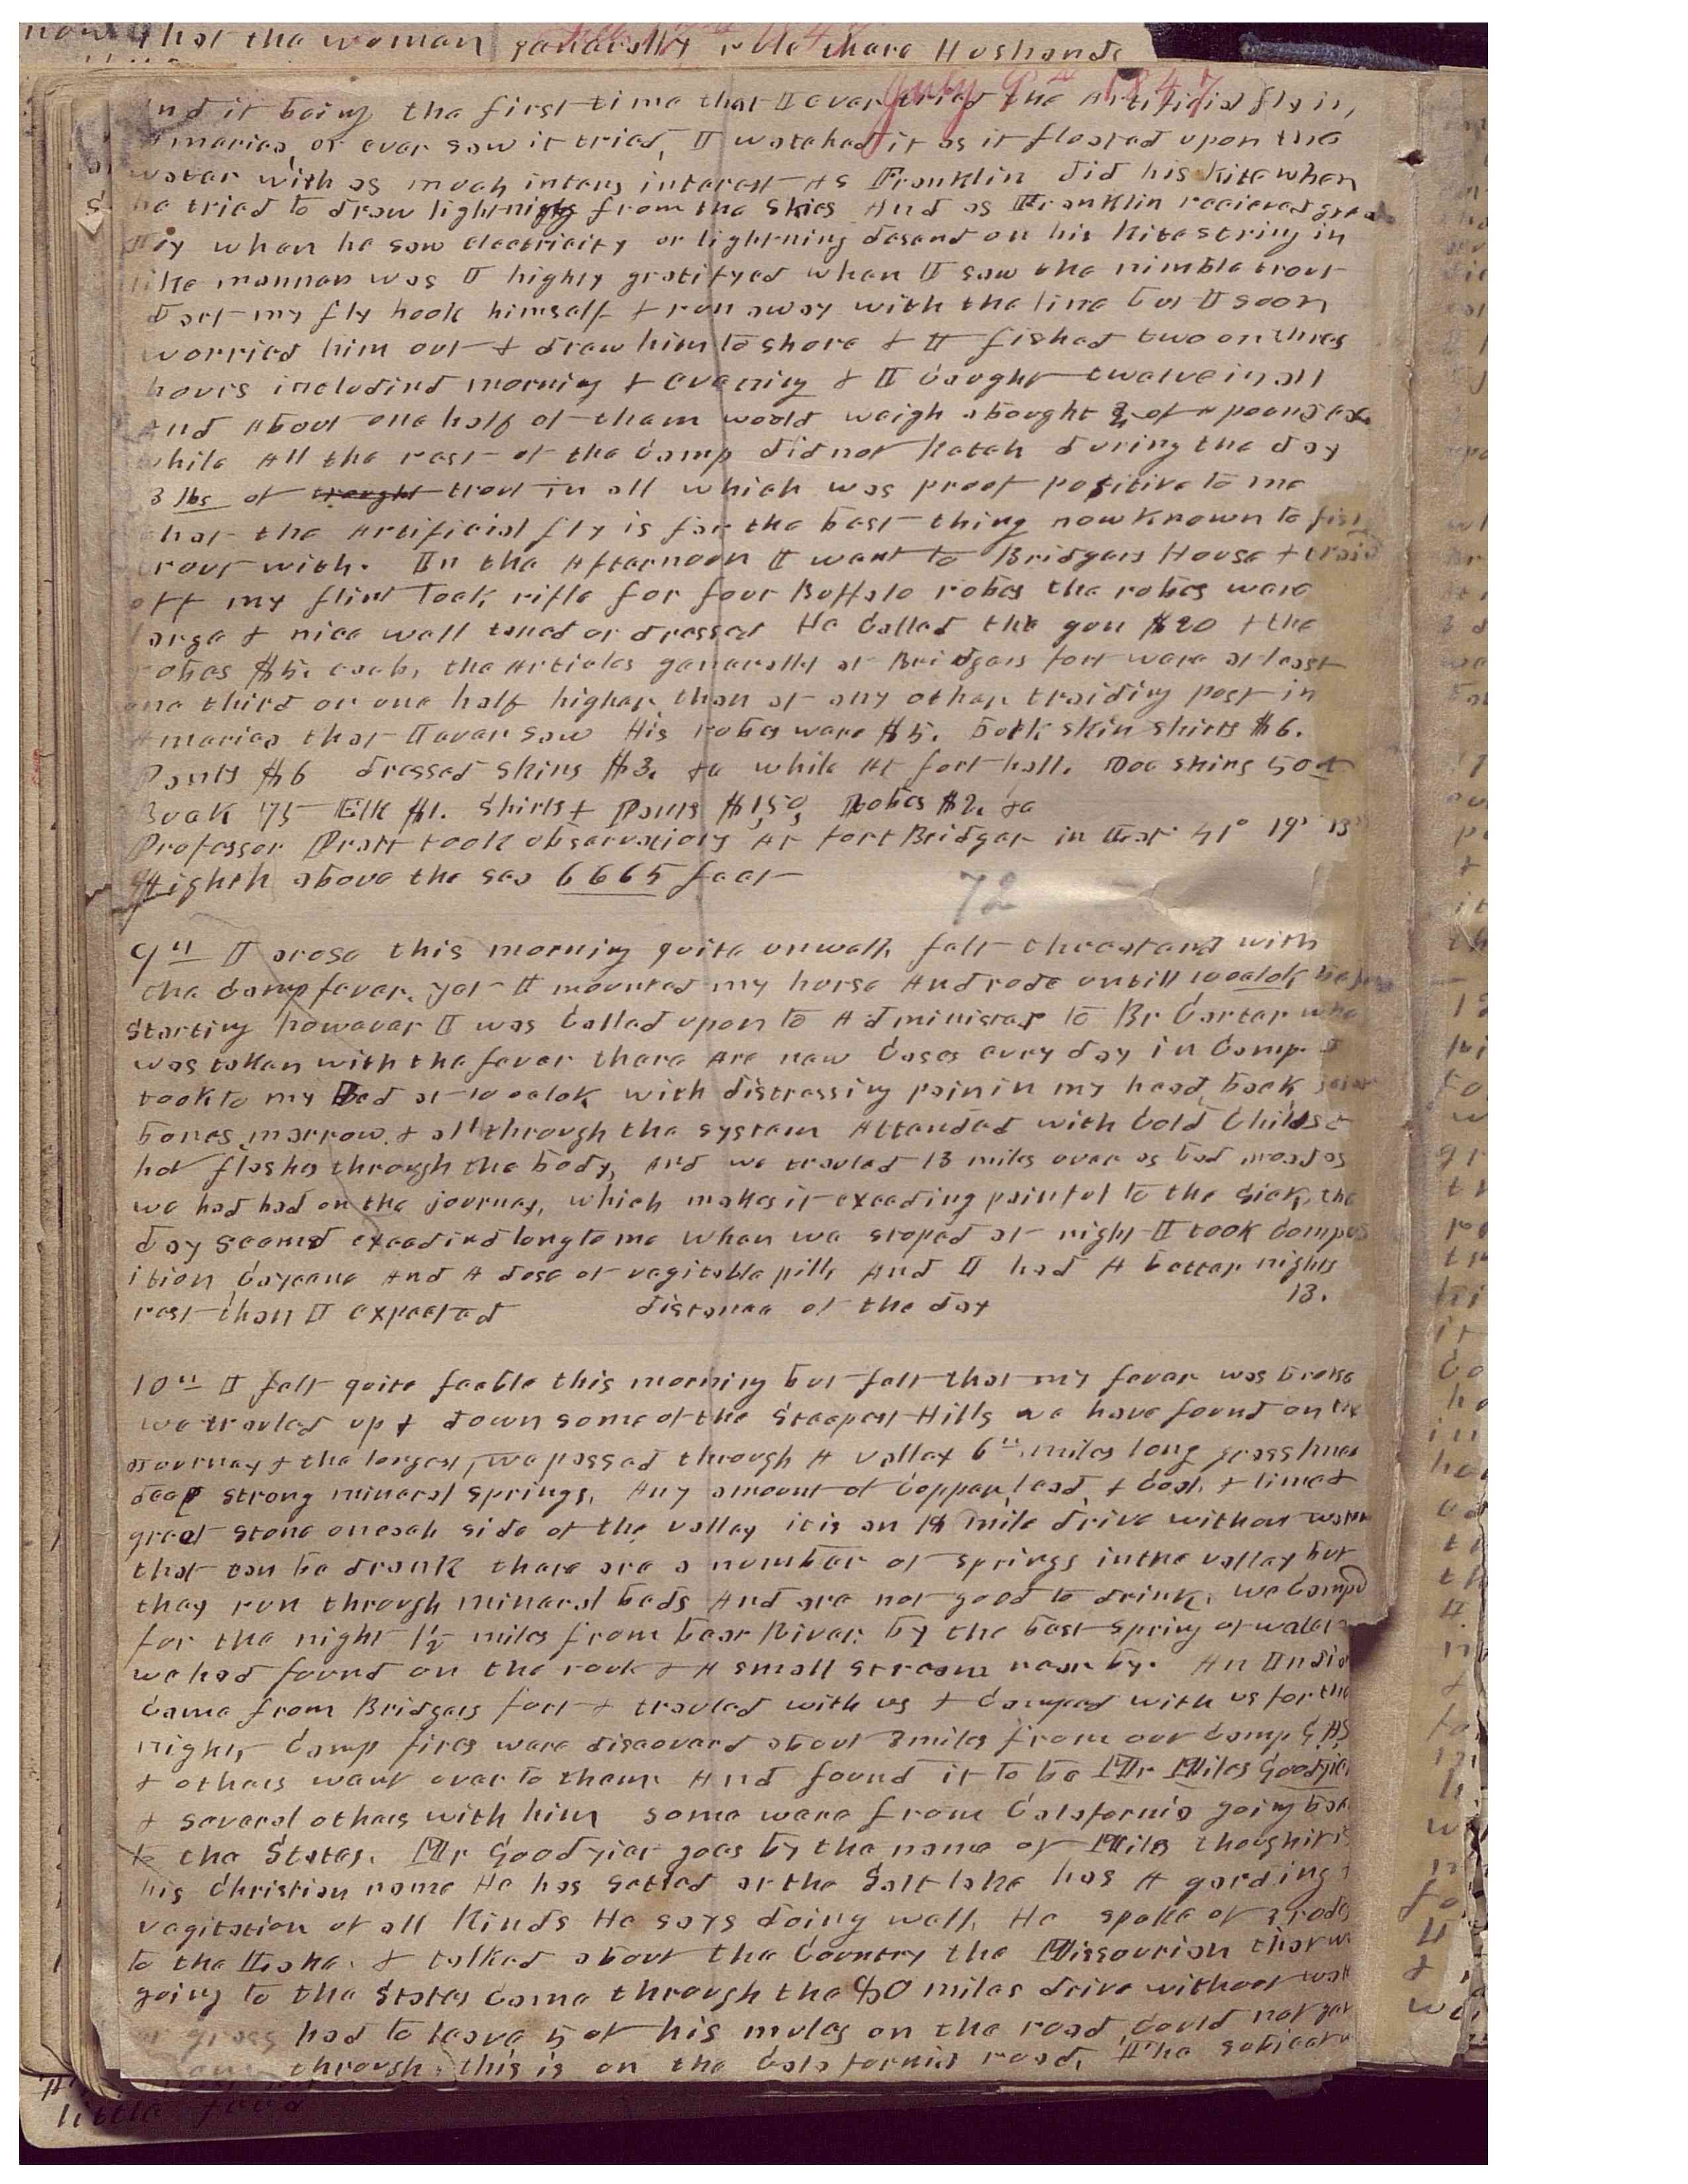 that the woman generally rule thare Husbands
July 9th 1847
And it being the first time that I ever tried the Artificial fly in
America, or ever saw it tried, I watched it as it floated upon the
water with as much intens interest As Franklin did his kite when
he tried to draw lightning from the skies And as Franklin recieved great
Joy when he saw electricity or lightning desend on his kite string in
like mannar was I highly gratifyed when I saw the nimble trout
dart my fly hook himself & run away with the line but I soon
worried him out & drew him to shore & I fished two or three
hours includind morning & evening & I caught twelve in all
And About one half of them would weigh abought 3/4 of a pound each
while All the rest of the camp did not ketch during the day
3 lbs of trout in all which was proof positive to me
that the Artificial fly is far the best thing now known to fish
trout with. In the Afternoon I want to Bridgers House & traid
off my flint lock rifle for four Buffalo robes the robes were
large & nice well taned or dressed He called the gun $20 & the
robes $5. each, the Articles generally at Bridgers fort were at least
one third or one half higher than at any other traiding post in
America that I ever saw His robes were $5. Buck skin shirts $6.
Pants $6 dressed skins $3. &c while At fort hall. Doe skins 50 ct
Buck 75 Elk $1. Shirts & Pants $1,50, Robes $2. &c
Professor Pratt took observations At Fort Bridger in Lat 41° 19' 13"
Highth above the sea 6665 feet
72
9th I arose this morning quite unwell, felt threatened with
the camp fever. yet I mounted my horse And rode untill 10 oclok before
starting however I was called upon to Administer to Br Carter who
was taken with the fever there Are new cases evry day in camp. I
took to my Bed at 10 oclok with distressing pain in my head, back,
bones, marrow, & all through the system Attended with Cold Chills &
hot flashes through the body, And we traveled 13 miles over as bad roads as
we had had on the journey, which makes it exceeding painful to the sick, the
day seemed exceedind long to me when we stoped at night I took compos
ition Cayenne And A dose of vegitable pills And I had A better nights
rest than I expected distance of the day 13.
10th I felt quite feeble this morning but felt that my fever was broke
we traveled up & down some of the steepest Hills we have found on the
Journey & the longest, we passed through A valley 6 miles long grass knee
deep strong mineral springs, Any amount of Copper, lead, & coal, & lime &
great stone on each side of the valley it is an 18 mile drive without water
that can be drank there are a number of springs in the valley but
they run through mineral beds And are not good to drink. we campd
for the night 1½ miles from bear River by the best spring of water
we had found on the rout & A small stream near by. An Indian
came from Bridgers fort & traveled with us & camped with us for the
night, Camp fires were discoverd about 3 miles from our camp G. A. S.
& others want over to them And found it to be Mr Miles Goodyier
& several others with him some were from Calafornia going back
to the States. Mr Goodyier goes by the name of Miles though it is
his Christian name He has setled at the Salt lake has A garding &
vegitation of all kinds He says doing well. He spoke of 3 rodes
to the Lake. & talked about the Country the Missourian that was
going to the states came through the 80 miles drive without water
or grass had to leave 5 of his mules on the road could not get
through this is on the Calafornia road,
little food